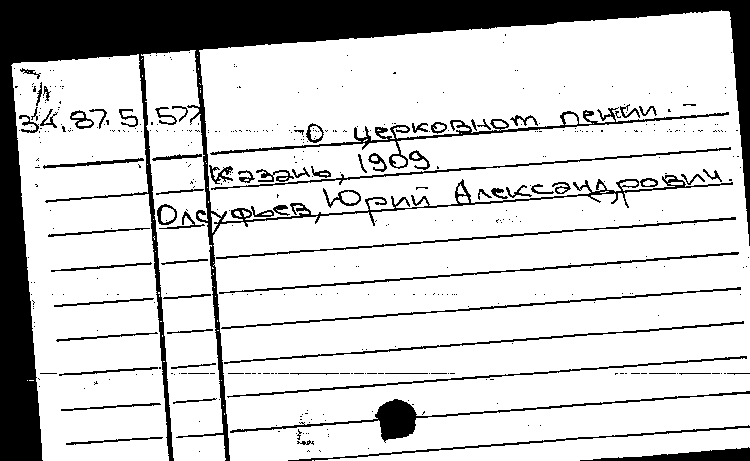 34.87.5.577
О церковном пении. –
Казань, 1909.
Олсуфьев, Юрий Александрович.